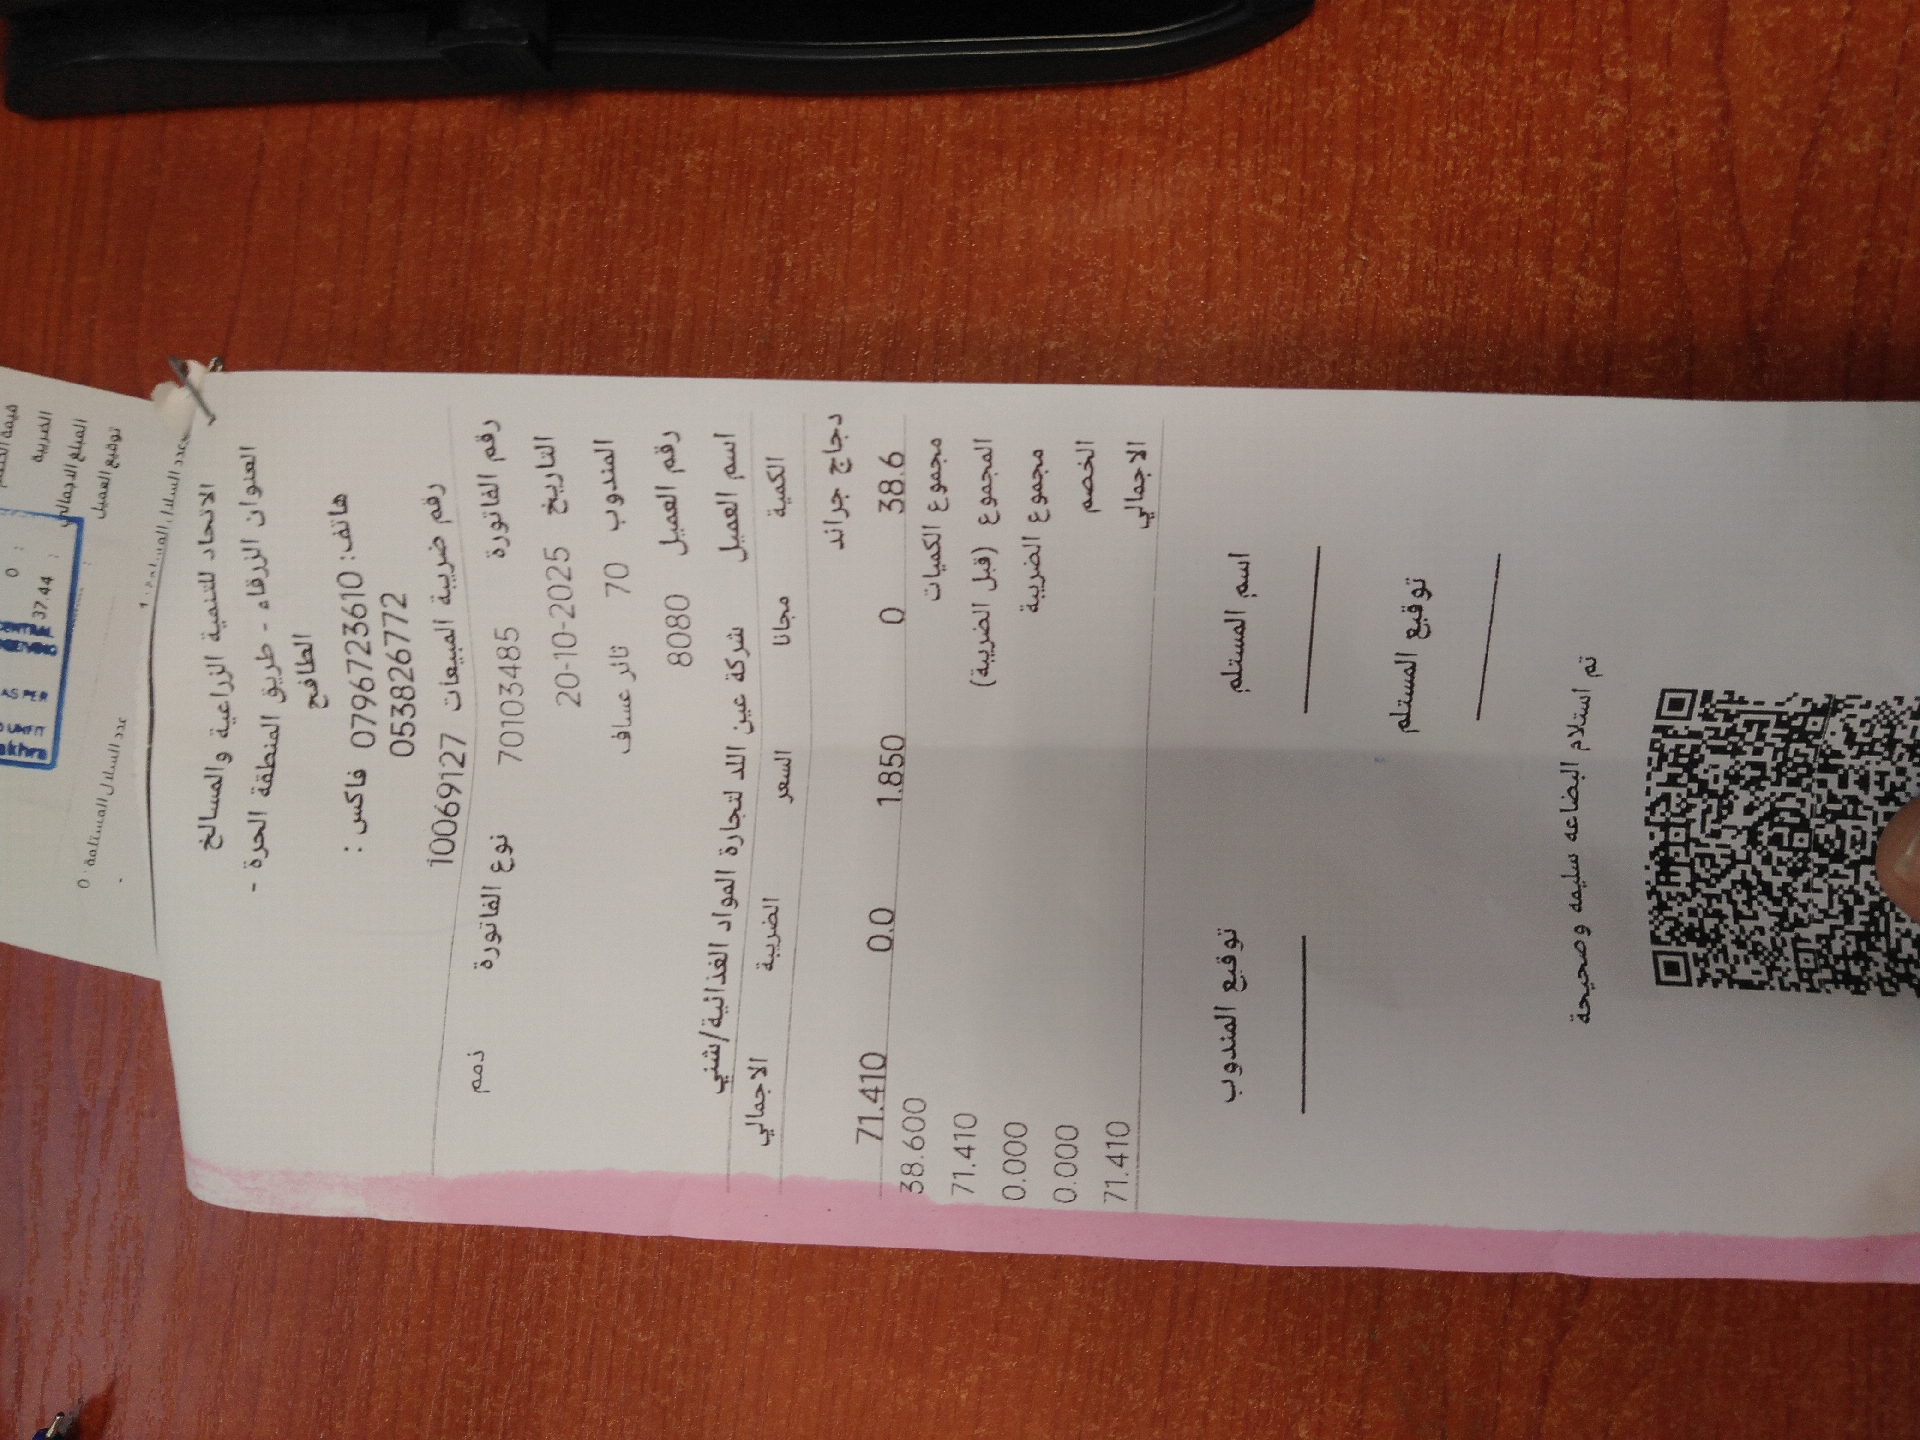 قيمة الخصم
الضريبة
المبلغ الاجمالي
توقيع العميل
0 :
37.44 :
CENTRAL
AS PER
UNFIT
akhra
عدد السلال المسلمة: 1
عدد السلال المستلمة: 0
الاتحاد للتنمية الزراعية والمسالخ
العنوان الزرقاء - طريق المنطقة الحرة -
الطافح
هاتف: 0796723610 فاكس:
053826772
رقم ضريبة المبيعات 10069127
رقم الفاتورة 70103485 نوع الفاتورة ذمم
التاريخ 20-10-2025
المندوب 70 ثائر عساف
رقم العميل 8080
اسم العميل شركة عين اللد لتجارة المواد الغذائية/شني
الكمية مجانا السعر الضريبة الاجمالي
دجاج جراند
38.6 0 1.850 0.0 71.410
مجموع الكميات 38.600
المجموع (قبل الضريبة) 71.410
مجموع الضريبة 0.000
الخصم 0.000
الاجمالي 71.410
اسم المستلم توقيع المندوب
توقيع المستلم
تم استلام البضاعه سليمه وصحيحة